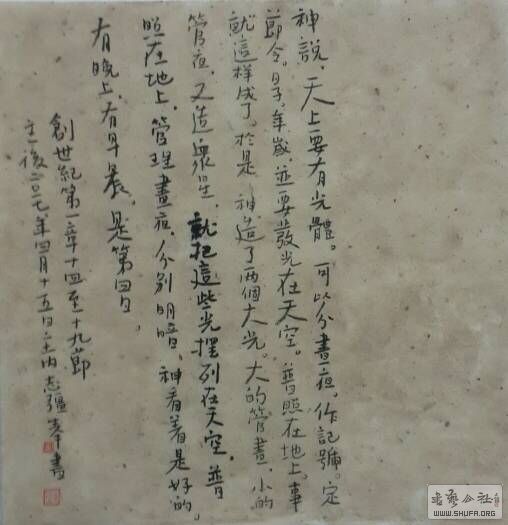 神說，天上要有光體。可以分晝夜，作記號。定
節令。日子，年歲，並要發光在天空。普照在地上。事
就這樣成了。於是神造了两個大光。大的管晝，小的
管夜，又造衆星，就把這些光擺列在天空，普
照在地上，管理晝夜，分別明暗，神看着是好的。
有晚上，有早晨，是第四日。
創世紀第一章十四至十九節
主後二〇一七年四月十五日 志疆 書
书艺公社
WWW.SHUFA.ORG